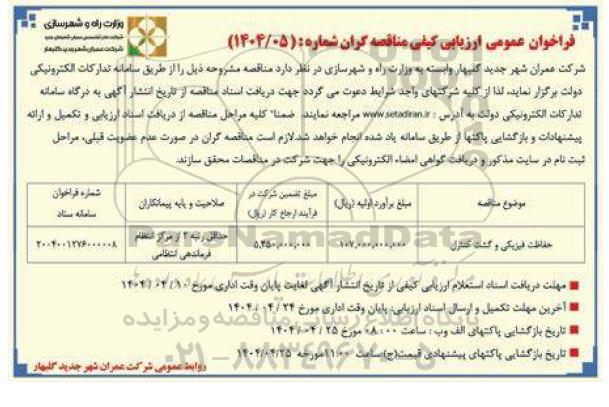 وزارت راه و شهرسازی
شرکت عمران شهر جدید گلبهار
فراخوان عمومی ارزیابی کیفی مناقصه گران شماره : (۱۴۰۴/۰۵)
شرکت عمران شهر جدید گلبهار وابسته به وزارت راه و شهرسازی در نظر دارد مناقصه مشروحه ذیل را از طریق سامانه تدارکات الکترونیکی
دولت برگزار نماید، لذا از کلیه شرکتهای واجد شرایط دعوت می گردد جهت دریافت اسناد مناقصه از تاریخ انتشار آگهی به درگاه سامانه
تدارکات الکترونیکی دولت به آدرس : www.setadiran.ir مراجعه نمایند. ضمنا" کلیه مراحل مناقصه از دریافت اسناد ارزیابی و تکمیل و ارائه
پیشنهادات و بازگشایی پاکتها از طریق سامانه یاد شده انجام خواهد شد.لازم است مناقصه گران در صورت عدم عضویت قبلی، مراحل
ثبت نام در سایت مذکور و دریافت گواهی امضاء الکترونیکی را جهت شرکت در مناقصات محقق سازند.
موضوع مناقصه
مبلغ برآورد اولیه (ریال)
مبلغ تضمین شرکت در فرآیند ارجاع کار (ریال)
صلاحیت و پایه پیمانکاران
شماره فراخوان سامانه ستاد
حفاظت فیزیکی و گشت کنترل
۱۰۷,۰۰۰,۰۰۰,۰۰۰
۵,۳۵۰,۰۰۰,۰۰۰
حداقل رتبه ۳ از مرکز انتظام فرماندهی انتظامی
۲۰۰۴۰۰۱۲۷۶۰۰۰۰۰۸
مهلت دریافت اسناد استعلام ارزیابی کیفی از تاریخ انتشار آگهی لغایت پایان وقت اداری مورخ ۱۰ / ۰۴ / ۱۴۰۴
آخرین مهلت تکمیل و ارسال اسناد ارزیابی، پایان وقت اداری مورخ ۲۴ / ۰۴ / ۱۴۰۴
تاریخ بازگشایی پاکتهای الف وب : ساعت ۰۸:۰۰ مورخ ۲۵ / ۰۴ / ۱۴۰۴
تاریخ بازگشایی پاکتهای پیشنهادی قیمت(ج):ساعت ۱۱:۰۰مورخه ۱۴۰۴/۰۴/۲۵
روابط عمومی شرکت عمران شهر جدید گلبهار
ParsNamadData
پایگاه اطلاع رسانی مناقصه و مزایده
۰۲۱-۸۸۳۴۹۶۷۰-۵